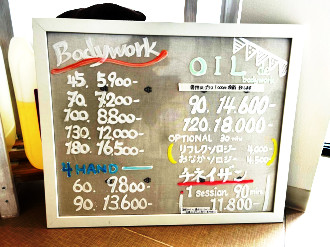 Bodywork
45. 5.900-
70. 7.200-
100. 8.800-
130. 12.000-
180. 16.500-
4 HAND
60. 9.800-
90. 13.600-
OIL de
bodywork
90. 14.600-
120. 18.000-
OPTIONAL 30 min
リフレクソロジー 4,000-
おなかソロジー 4,500-
チネイザン
1 session 90 min
11.800-